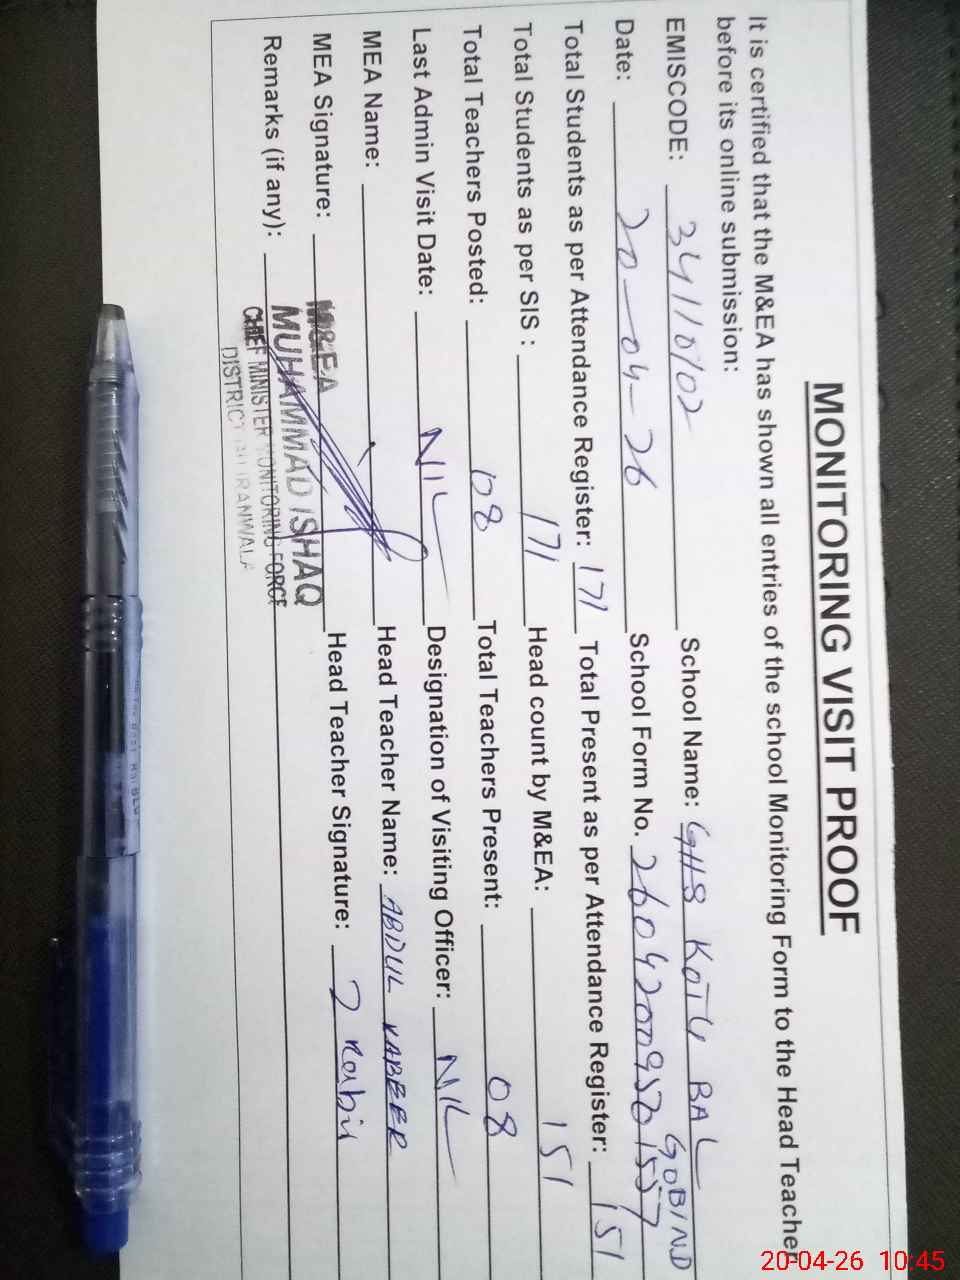 MONITORING VISIT PROOF
It is certified that the M&EA has shown all entries of the school Monitoring Form to the Head Teacher
before its online submission:
EMISCODE: 34110102 School Name: GHS KOTLI BAL GOBIND
Date: 20-04-26 School Form No.
Total Students as per Attendance Register: 171 Total Present as per Attendance Register: 151
Total Students as per SIS : 171 Head count by M&EA: 151
Total Teachers Posted: 08 Total Teachers Present: 08
Last Admin Visit Date: NIL Designation of Visiting Officer: NIL
MEA Name: Head Teacher Name: ABDUL KABEER
MEA Signature: Head Teacher Signature:
Remarks (if any):
M&EA
MUHAMMAD ISHAQ
CHIEF MINISTER MONITORING FORCE
DISTRICT GUJRANWALA
20-04-26 10:45